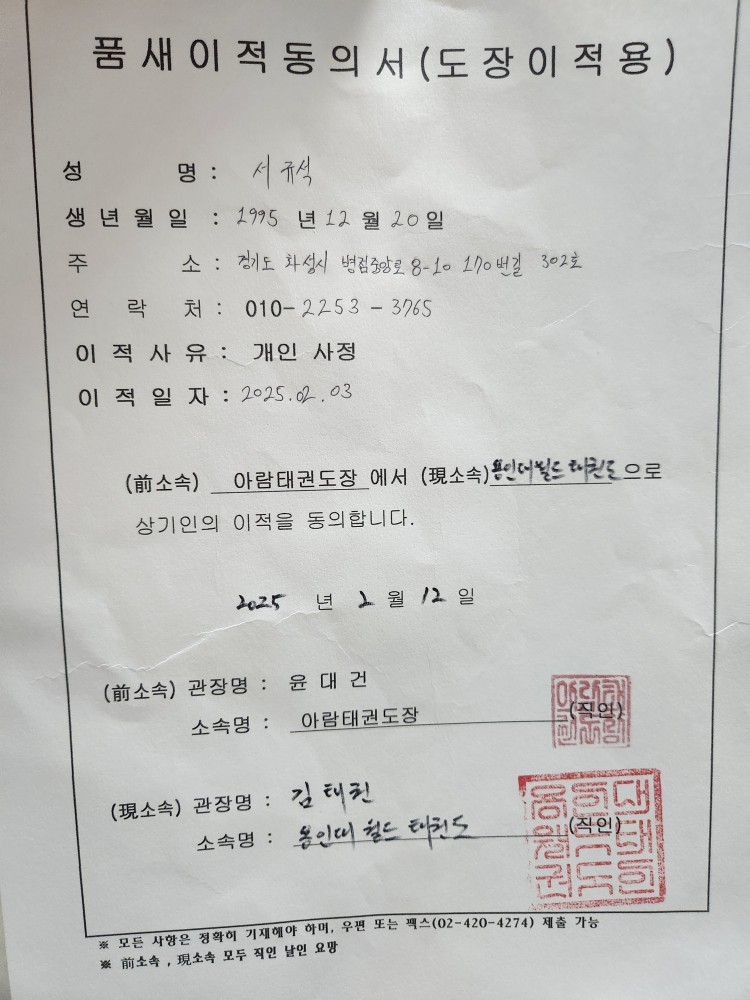 품새이적동의서(도장이적용)
성 명 : 서규석
생년월일 : 1995 년 12 월 20 일
주 소 : 경기도 화성시 병점중앙로 8-10 170번길 302호
연 락 처 : 010-2253-3765
이적사유 : 개인 사정
이적일자 : 2025.02.03
(前소속) 아람태권도장 에서 (現소속) 용인대월드태권도 으로
상기인의 이적을 동의합니다.
2025 년 2 월 12 일
(前소속) 관장명 : 윤 대 건
소속명 : 아람태권도장 (직인)
(現소속) 관장명 : 김태권
소속명 : 용인대 월드 태권도 (직인)
※ 모든 사항은 정확히 기재해야 하며, 우편 또는 팩스(02-420-4274) 제출 가능
※ 前소속 , 現소속 모두 직인 날인 요망